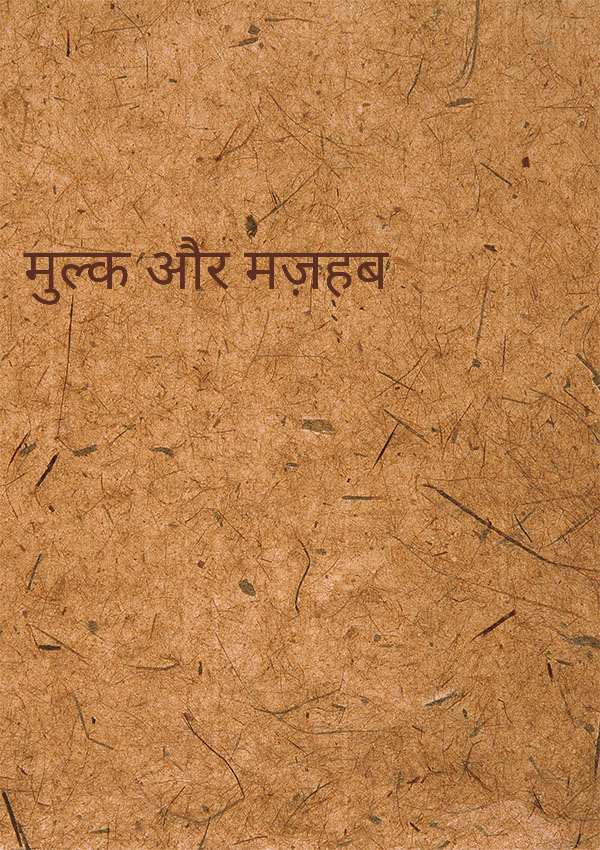 मुल्क और मज़हब